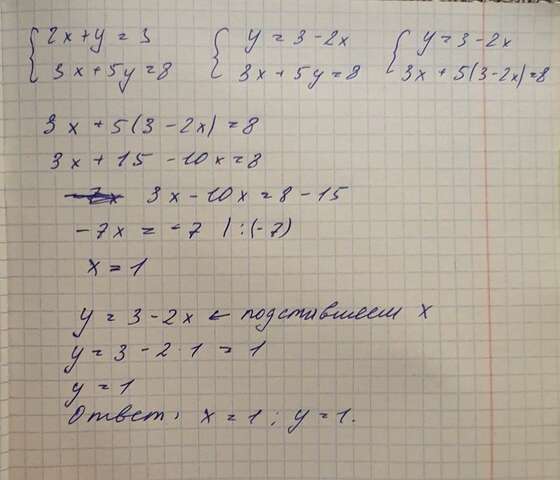 { 2x + y = 3 { y = 3 - 2x { y = 3 - 2x
3x + 5y = 8 3x + 5y = 8 3x + 5(3 - 2x) = 8
3x + 5(3 - 2x) = 8
3x + 15 - 10x = 8
3x - 10x = 8 - 15
-7x = -7 | : (-7)
x = 1
y = 3 - 2x ← подставляем x
y = 3 - 2 · 1 = 1
y = 1
Ответ: x = 1 ; y = 1.